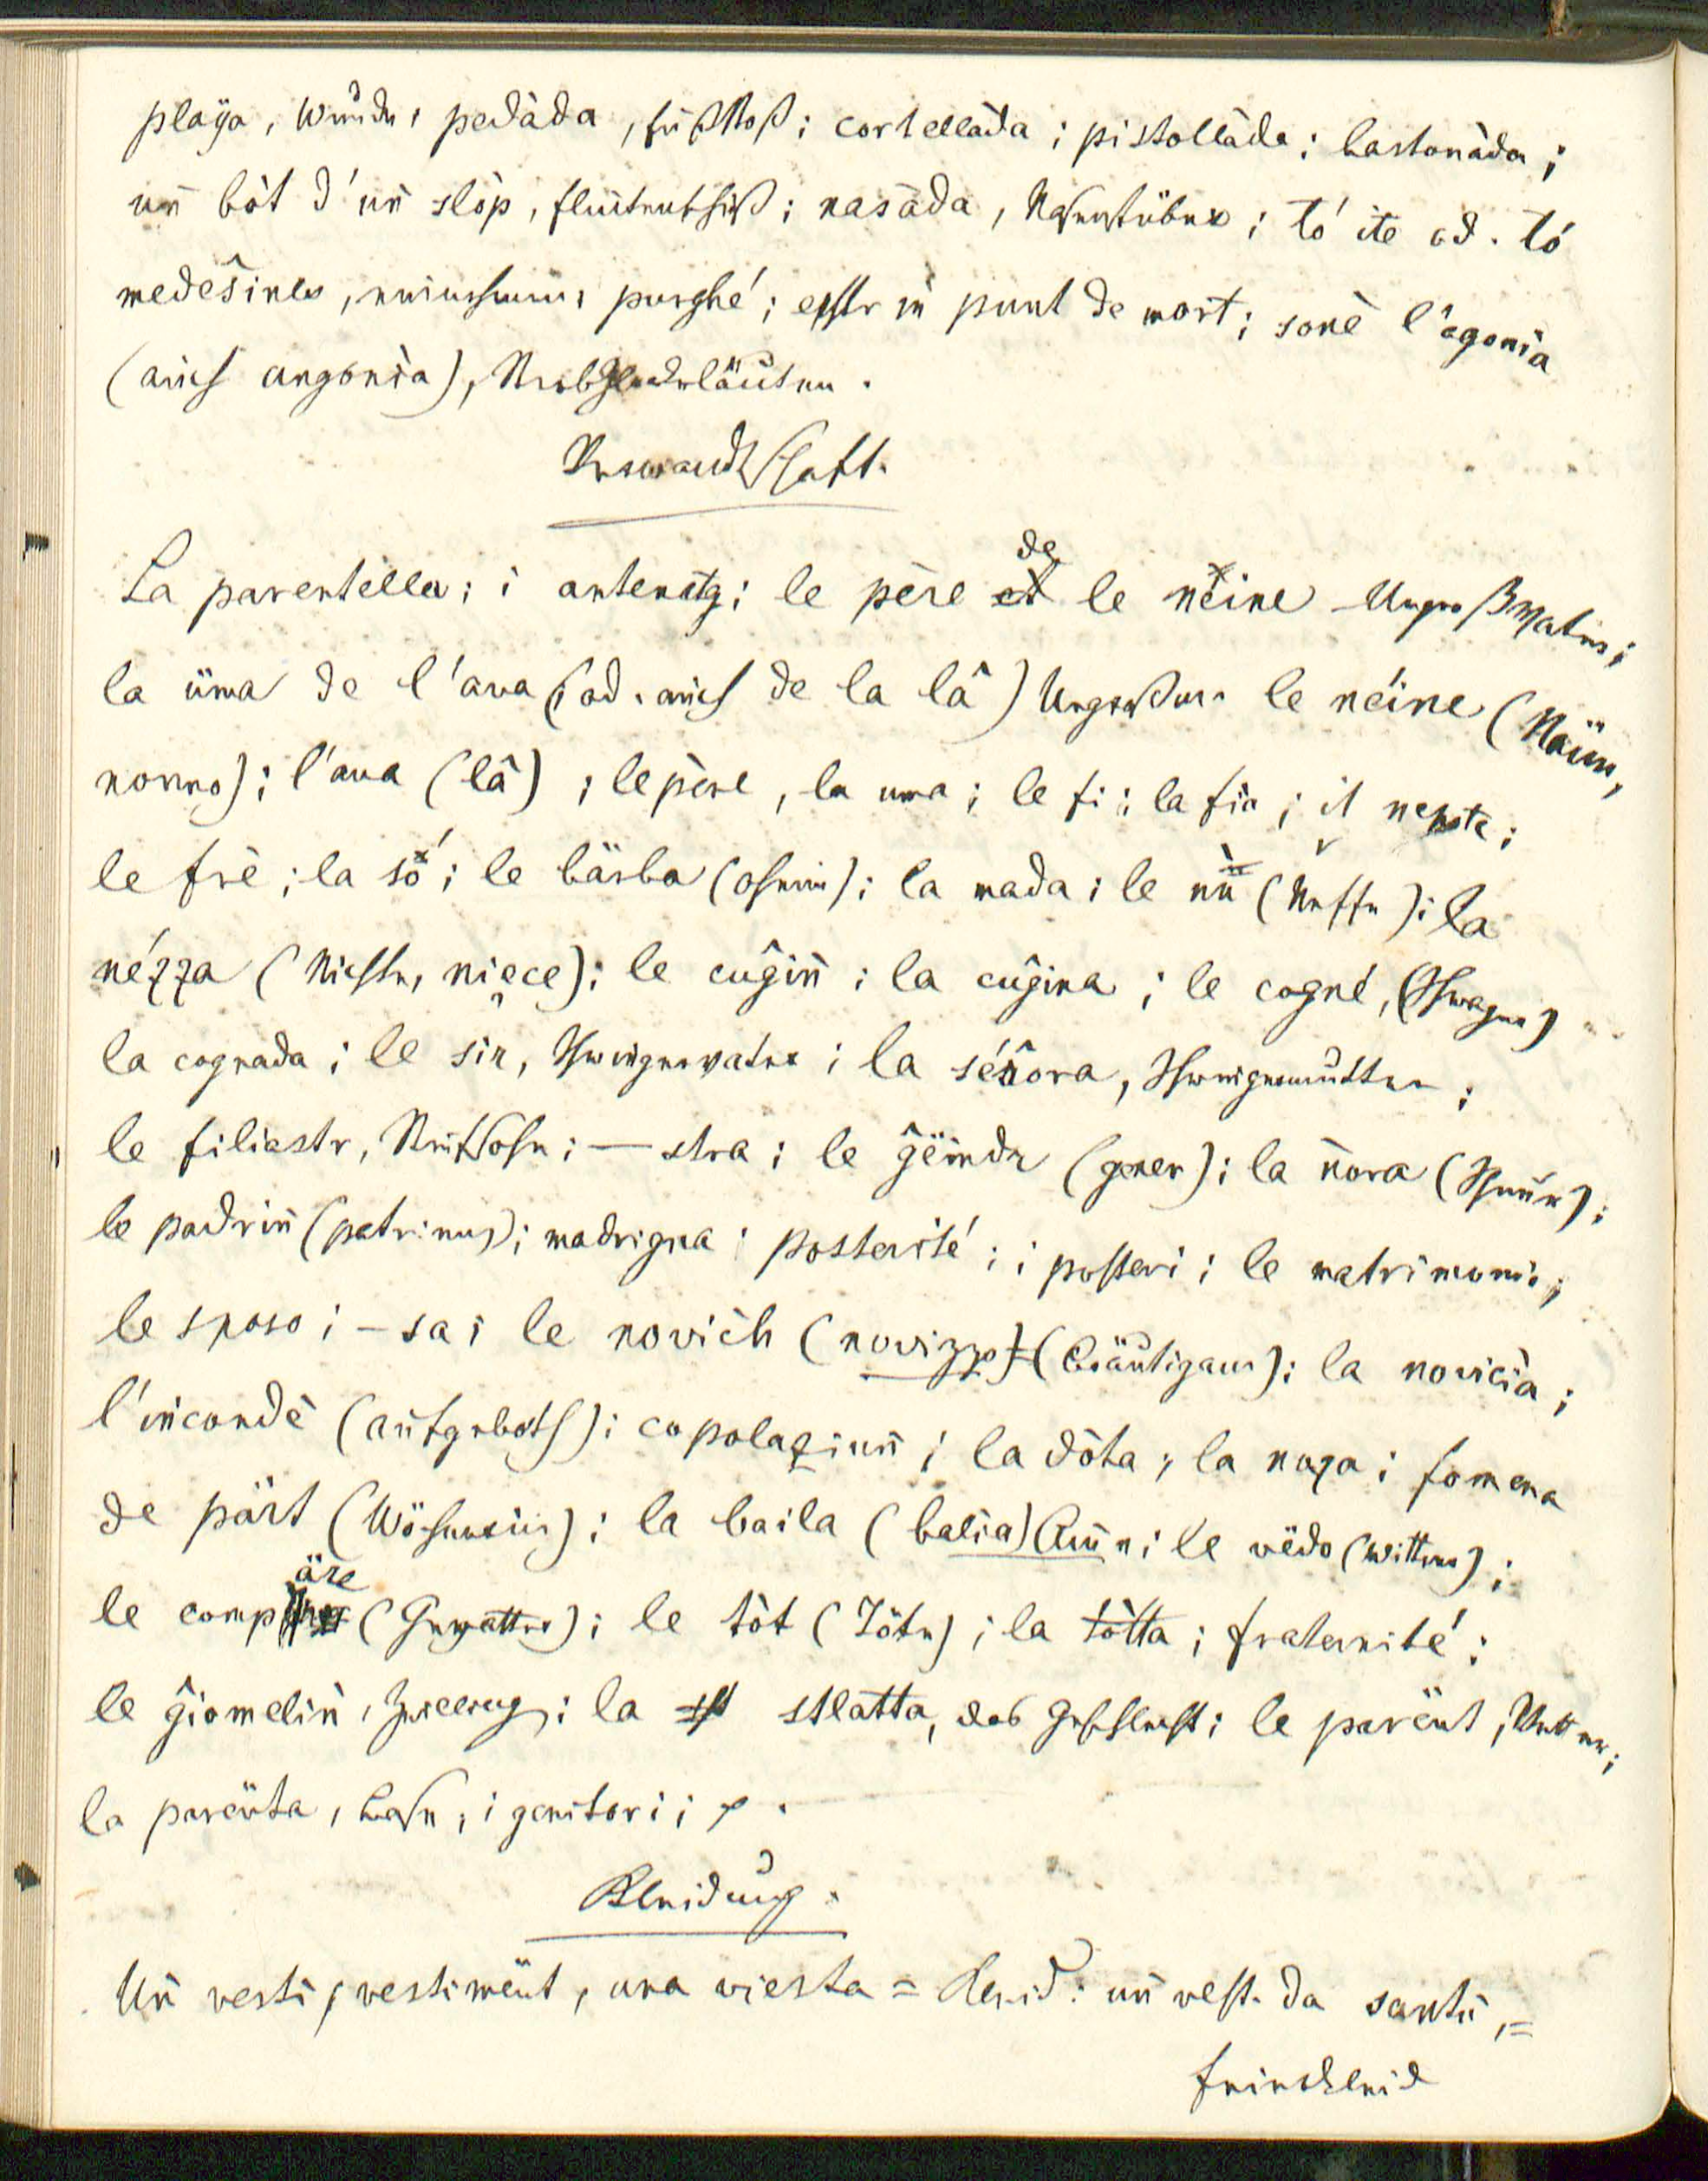 playa, Wunde, pedàda, Fußstoß; cortellàda; pistollàda; bastonàda;
uǹ bòt d'uǹ slòp, Flintenschuß; nasàda, Nasenstüber; tó ite od. tó
medeŝines, einnehmen, purghé; esstr iǹ punt de mort; sonè l'agonìa
(auch angonìa), Sterbglockeläuten.
Verwandtschaft.
La parentella; i antenatg; le père de le neine Urgroßvater;
la üma de l'ava (od. auch de la lâ) Urgroßm. le néine (Näine,
nonno); l'ava (lâ); le père, la uma; le fi; la fia; il nepote;
le frè; la só; le bärba (Oheim); la mada; le nü (Neffe); la
nézza (Nichte, nièce); le cuĝiǹ; la cuĝina; le cogné, (Schwager)
la cognada; le sir, Schwiegervater; la séŝora, Schwiegermutter;
le filiastr, Stiefsohn; — stra; le ĝëindr (gener); la ǹora (Schnur);
le padriǹ (patrinus); madrigna; posterité; i posteri; le matrimonio;
le sposo; – sa; le novìch (novizzo) (Bräutigam); la novicia;
l'incondè (Aufgeboth); copolaziuǹ; la dòta; la noza; fomena
de pärt (Wöchnerin); la baila (balia) Amme; le vëdo (Wittwer);
le compäre (Gevatter); le tòt (Töte); la tòtta; fraternité;
le ĝiomeliǹ, Zwilling; la stlatta, das Geschlecht; le parënt, Vetter;
la parënta, Base; i genitori;
Kleidung.
Uǹ vestì, vestimënt, una viesta = Kleid: uǹ vest. da santü, =
Feierkleid